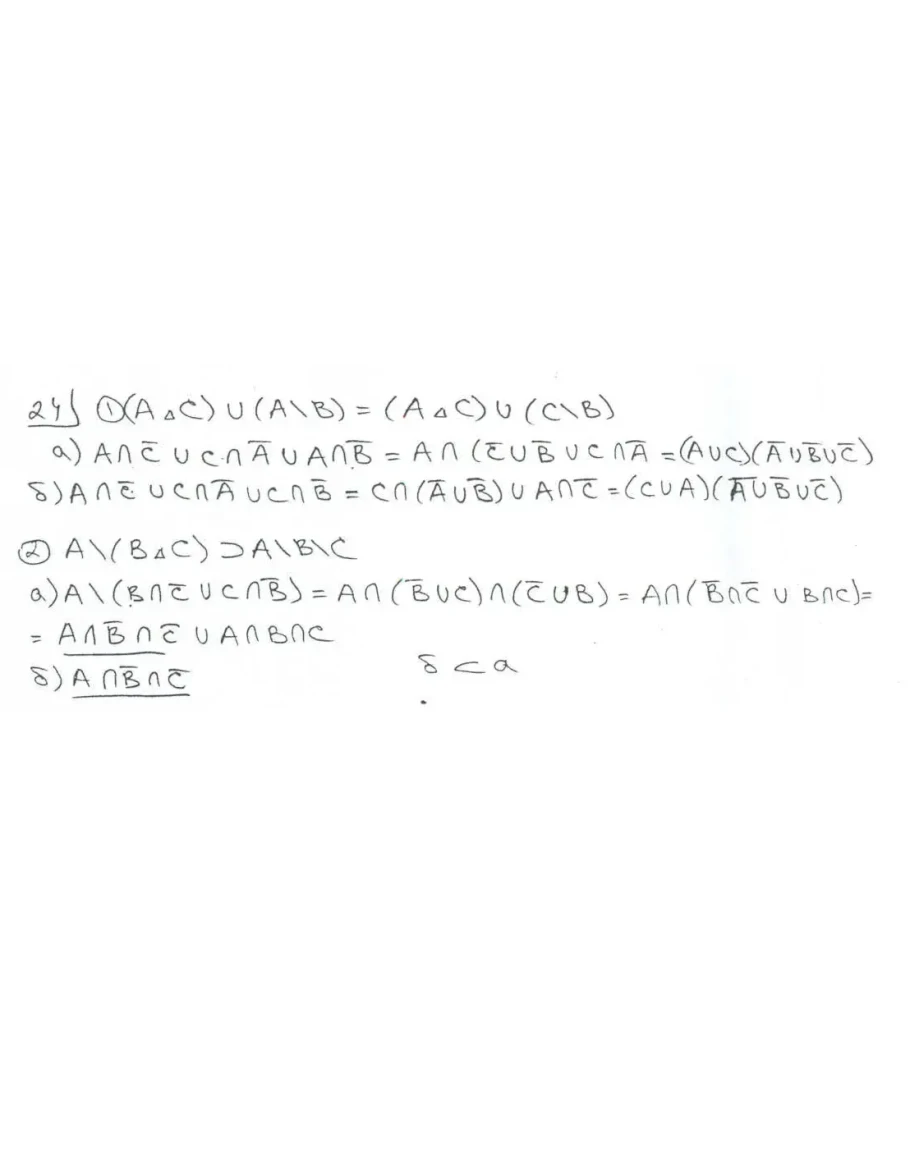 24) ① (A △ C) ∪ (A \ B) = (A △ C) ∪ (C \ B)
а) A ∩ C̅ ∪ C ∩ A̅ ∪ A ∩ B̅ = A ∩ (C̅ ∪ B̅ ∪ C ∩ A̅ = (A ∪ C)(A̅ ∪ B̅ ∪ C̅)
б) A ∩ C̅ ∪ C ∩ A̅ ∪ C ∩ B̅ = C ∩ (A̅ ∪ B̅) ∪ A ∩ C̅ = (C ∪ A)(A̅ ∪ B̅ ∪ C̅)
② A \ (B △ C) ⊃ A \ B \ C
а) A \ (B ∩ C̅ ∪ C ∩ B̅) = A ∩ (B̅ ∪ C) ∩ (C̅ ∪ B) = A ∩ (B̅ ∩ C̅ ∪ B ∩ C) =
= A ∩ B̅ ∩ C̅ ∪ A ∩ B ∩ C
б) A ∩ B̅ ∩ C̅ б ⊂ а